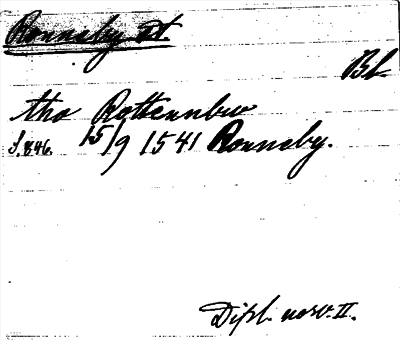 Ronneby st.
Bl
tho Rottennbw
S. 846. 15/9 1541 Ronneby.
Dipl. norv. II.